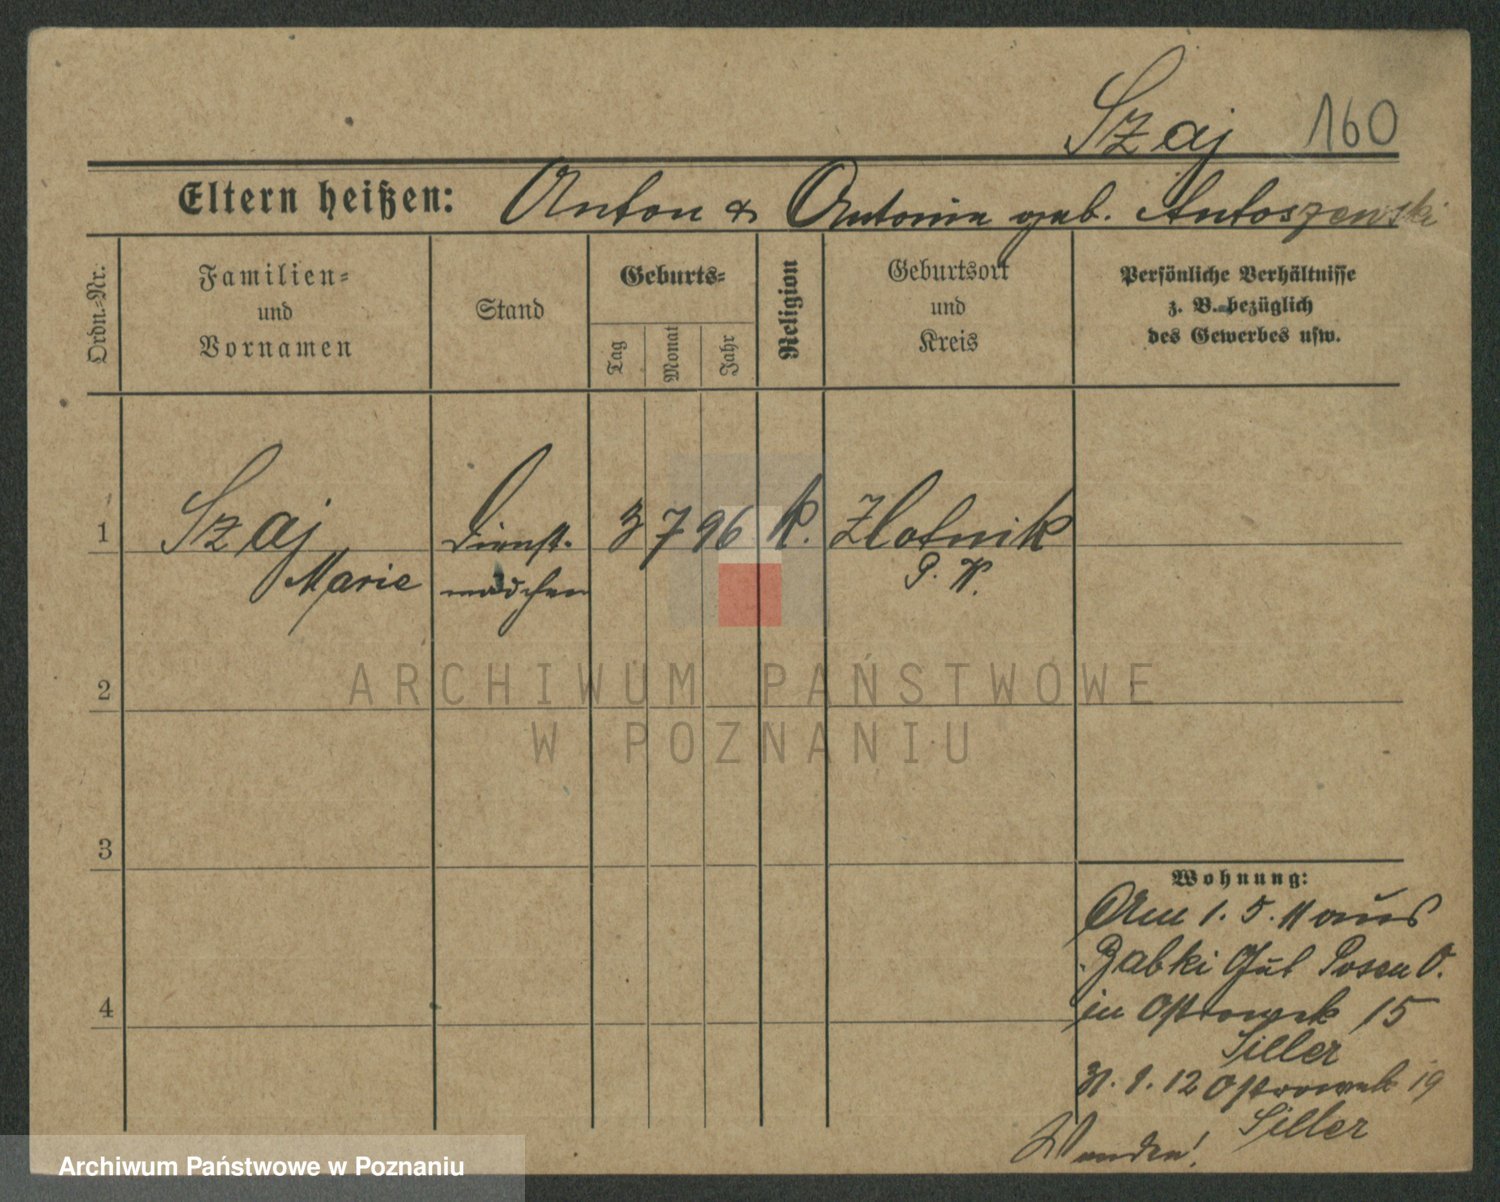 Szaj 160
Eltern heißen: Anton & Antonie geb. Antoszewski
Ordn.-Nr.
Familien-
und
Vornamen
Stand
Geburts-
Tag
Monat
Jahr
Religion
Geburtsort
und
Kreis
Persönliche Verhältnisse
z. B. bezüglich
des Gewerbes usw.
1 Szaj Dienst- 3 7 96 k. Zlotnik
Marie mädchen P. W.
2
3
4
Wohnung:
Am 1. 5. 11 aus
Babki Gut Posen O.
in Ostrowek 15
Siller
31. 1. 12 Ostrowek 19
Siller
Wenden!
ARCHIWUM PAŃSTWOWE
W POZNANIU
Archiwum Państwowe w Poznaniu